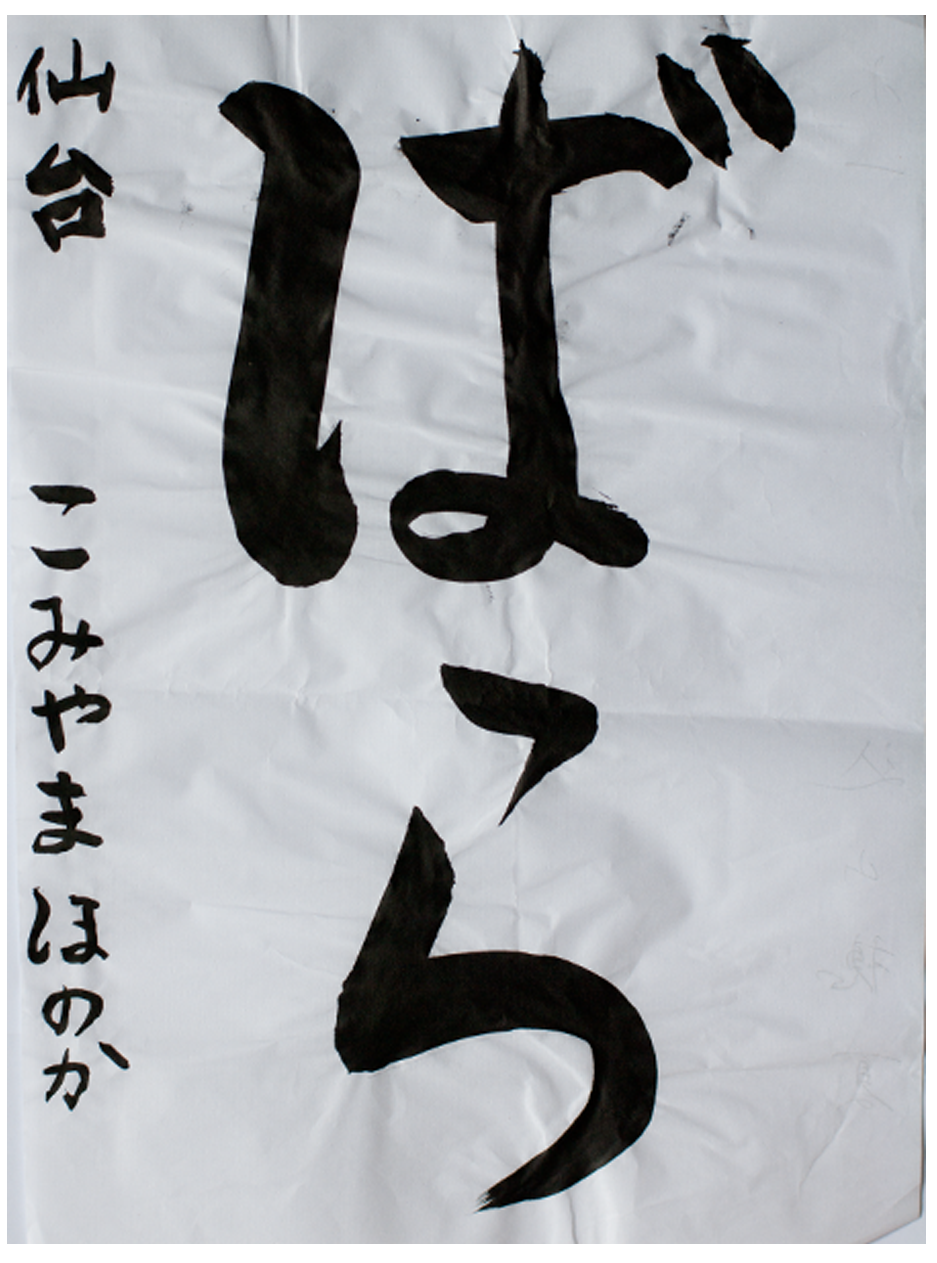 ばら
仙台 こみやまほのか